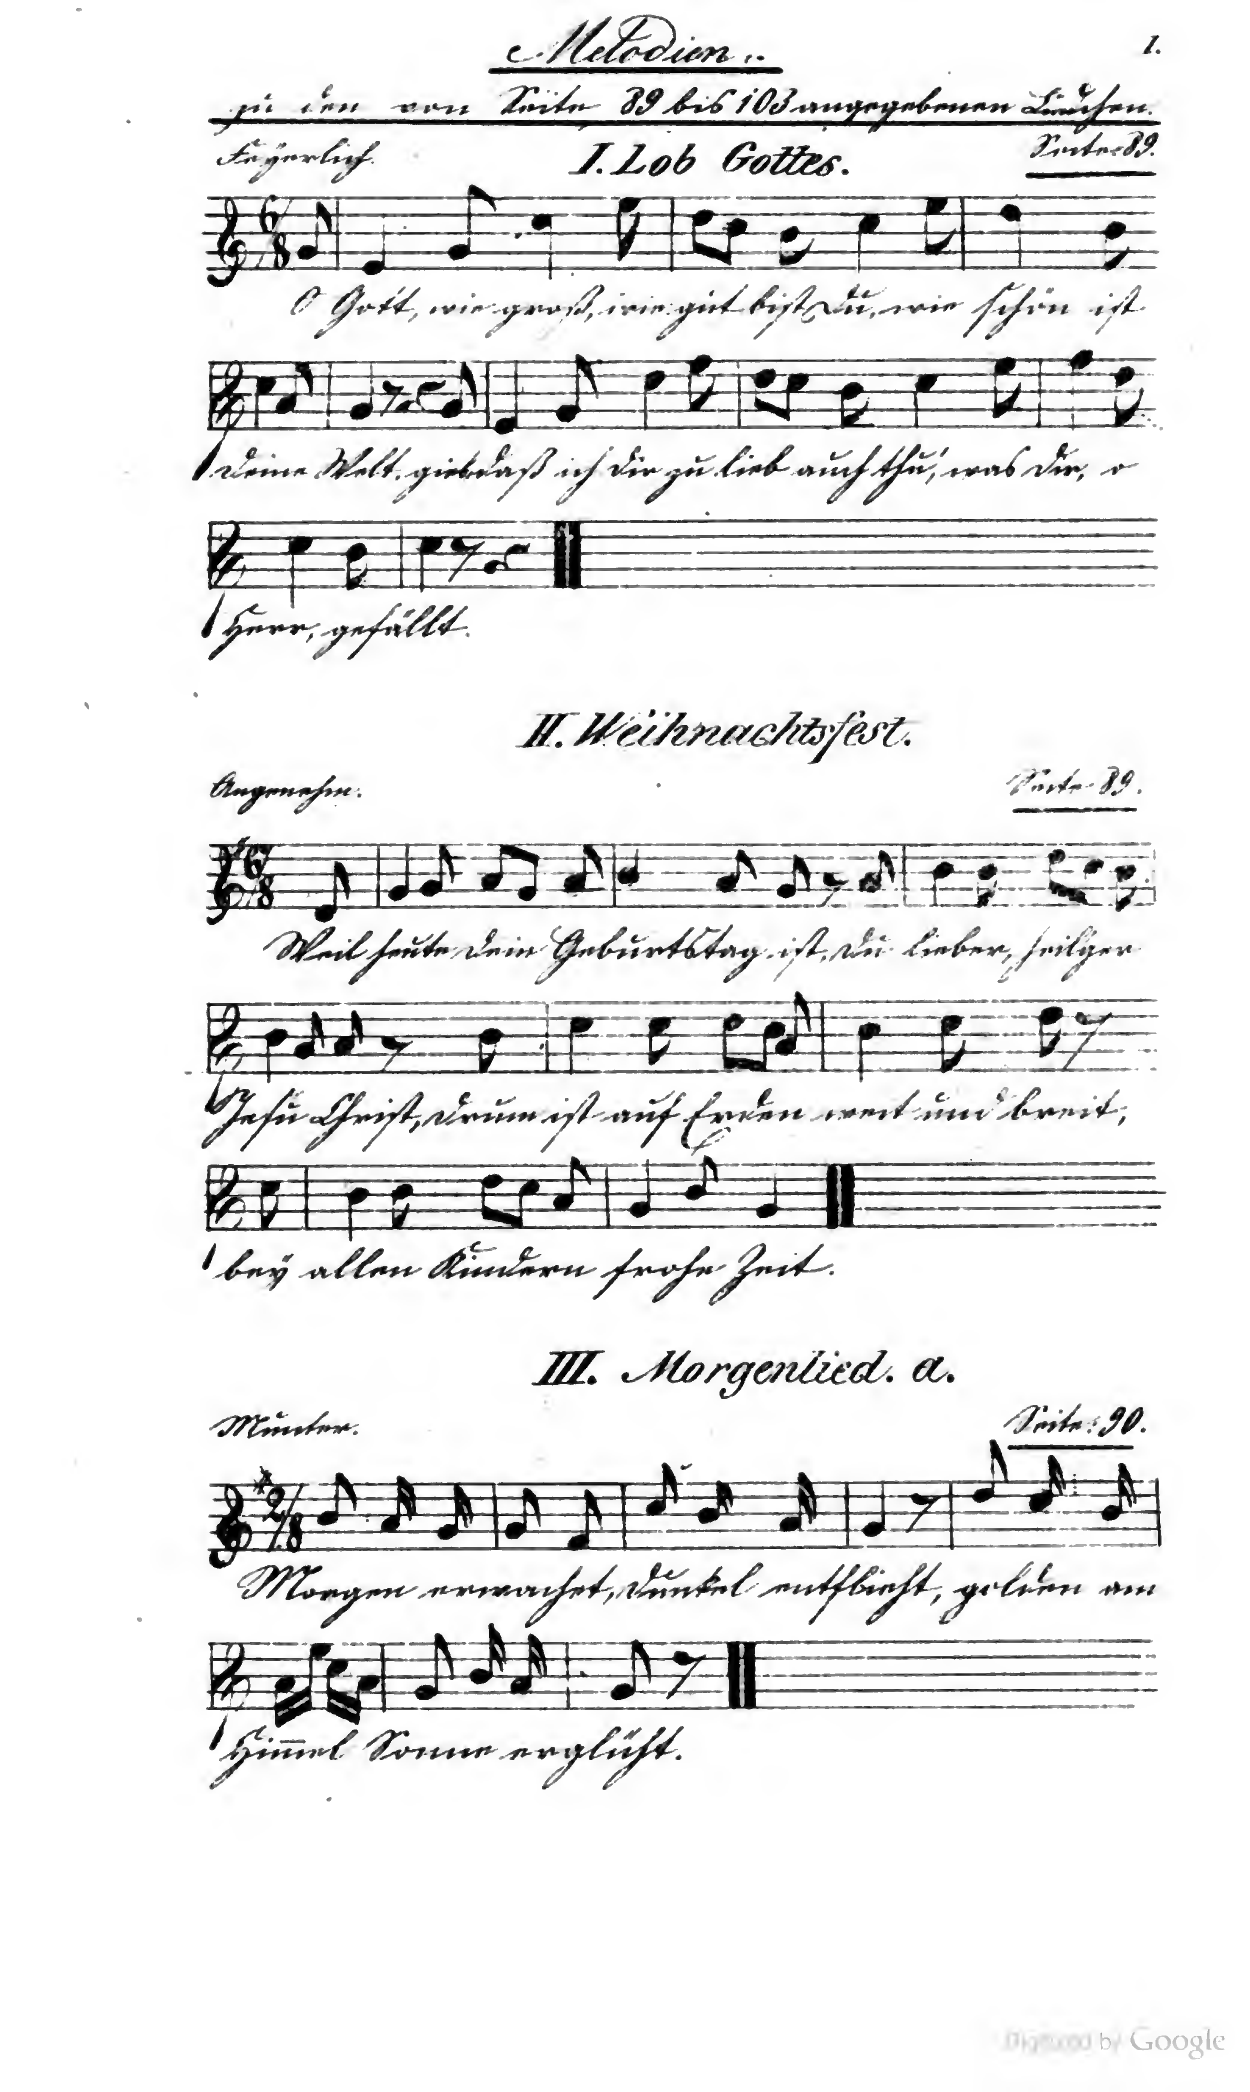 Melodien.
1.
zu den von Seite 89 bis 103 angegebenen Liedchen.
Feyerlich.
I. Lob Gottes.
Seite 89.
6/8
O Gott, wie groß, wie gut bist Du, wie schön ist
Deine Welt. gieb daß ich dir zu lieb auch thu', was dir, o
Herr, gefällt.
II. Weihnachtsfest.
Angenehm.
Seite 89.
6/8
Weil heute dein Geburtstag ist, du lieber, heil'ger
Jesu Christ, drum ist auf Erden weit und breit,
bey allen Kindern frohe Zeit.
III. Morgenlied. a.
Munter.
Seite: 90.
2/8
Morgen erwachet, Dunkel entflieht, golden am
Him̅el Sonne erglüht.
Digitized by Google